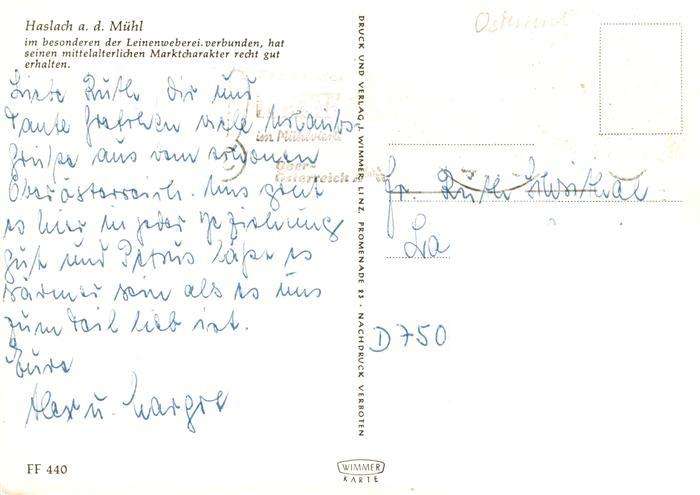 Haslach a. d. Mühl
im besonderen der Leinenweberei verbunden, hat
seinen mittelalterlichen Marktcharakter recht gut
erhalten.
Liebe Ruth Dir und
Tante viele Urlaubs-
grüße aus dem schönen
Oberösterreich. Uns geht
es hier in jeder Beziehung
gut und Petrus läßt es
wärmer sein als es uns
zum Teil lieb ist.
Eure
Alex u. Margot
FF 440
DRUCK UND VERLAG J. WIMMER LINZ, PROMENADE 23 · NACHDRUCK VERBOTEN
WIMMER
KARTE
im Mühlviertel
Ober-
österreich
Fr. Ruth
D 750